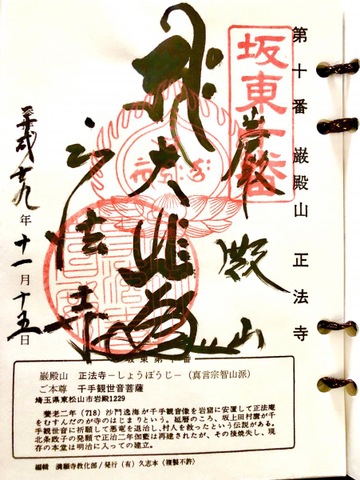 第十番 巌殿山 正法寺
坂東十番
巌殿山
大悲殿
正法寺
平成十九年十一月十五日
坂東第十番
巌殿山 正法寺－しょうぼうじ－（真言宗智山派）
ご本尊 千手観世音菩薩
埼玉県東松山市岩殿1229
養老二年（718）沙門逸海が千手観音像を岩窟に安置して正法庵
をむすんだのが寺のはじまりという。延暦のころ、坂上田村麿が千
手観世音に祈願して悪竜を退治し、村人を救ったという伝説がある。
北条政子の発願で正治二年伽藍は再建されたが、その後焼失し、現
存の本堂は明治に入っての建立。
編輯 満願寺教化部／発行（有）久志本（複製不許）